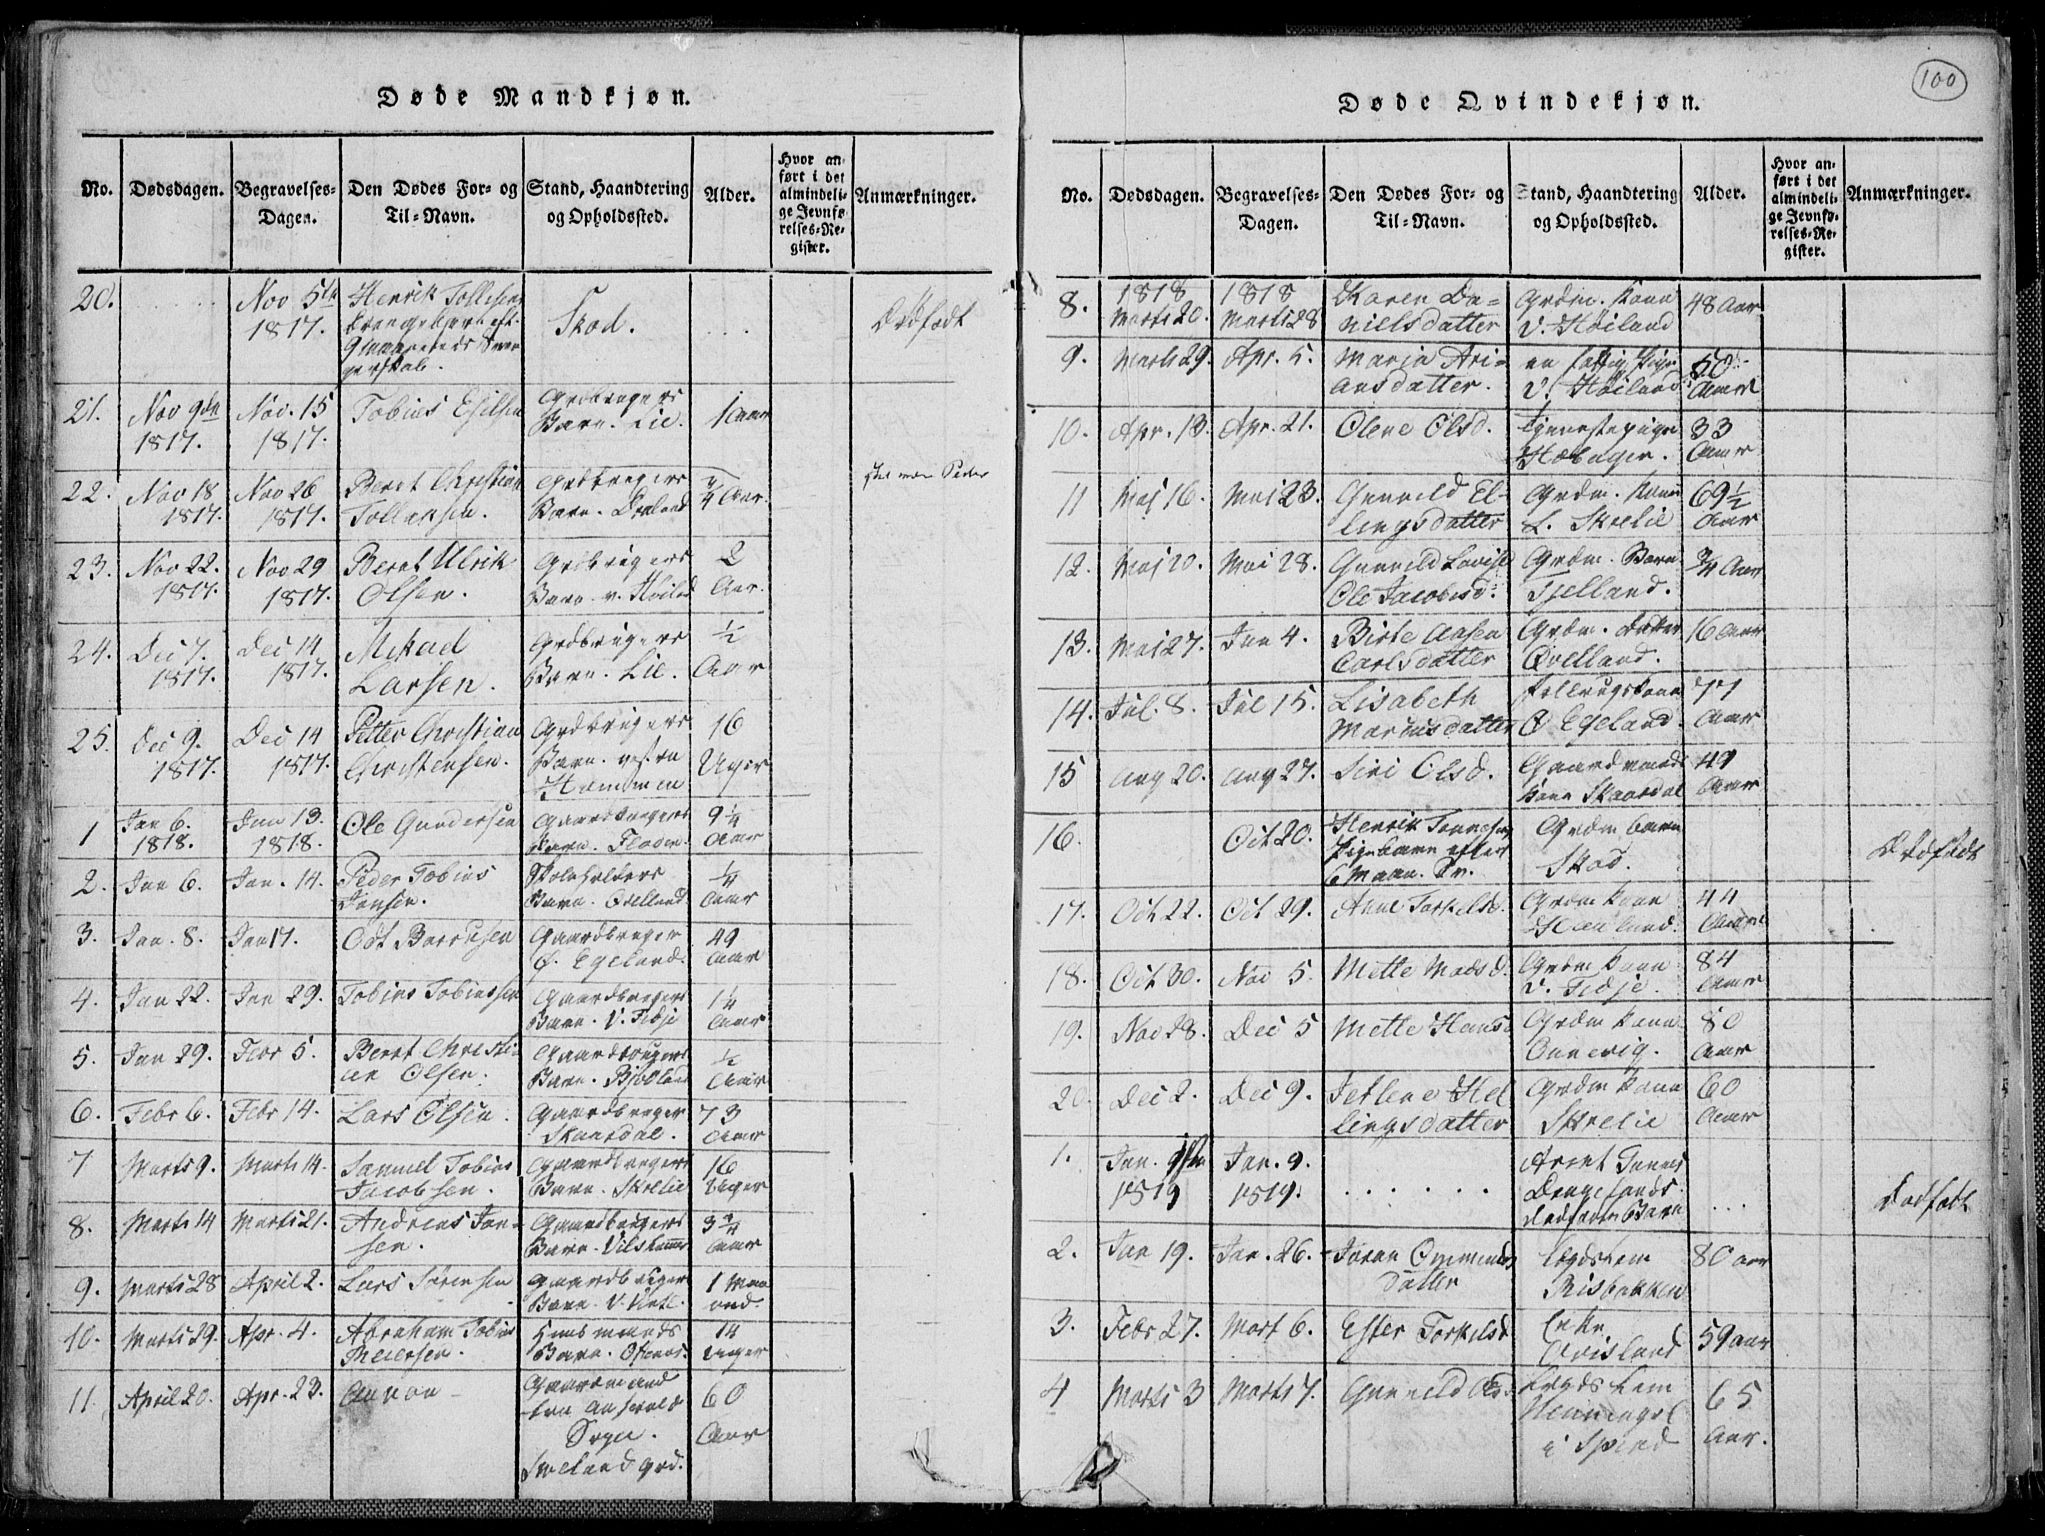 Døde Mandkjøn.
No. Dødsdagen. Begravelses-Dagen. Den Dødes For- og Til-Navn. Stand, Haandtering og Opholdssted. Alder. Hvor anført i det almindelige Jevnførelses-Register. Anmærkninger.
20. Nov 5te 1817. Henrik Tollefsens Skod. Dødfødt
21. Nov 9de 1817. Nov. 15 1817. Tobias Eilsen Grdbrugers Barn. Lie. 1 Aar
22. Nov 18 1817. Nov 26 1817. Berot Christian Tollaksen. Grdbrugers Barn. ¾ Aar.
23. Nov 22. 1817. Nov 29 1817. Berot Ulrik Olsen. Grdbrugers Barn. v. Høiland 2 Aar.
24. Dec 7. 1817. Dec 14 1817. Mikael Larsen. Grdbrugers Barn. Lie. ½ Aar
25. Dec 9. 1817. Dec 14 1817. Petter Christian Christensen. Grdbrugers Barn. vestre Hammen 16 Uger
1 Jan 6. 1818. Jan 13. 1818. Ole Gundersen Gaardbrugers Barn. 9¼ Aar
2. Jan 6. Jan. 14. Peder Tobias Jansen. Skoleholders Barn. Qvelland. ¼ Aar
3. Jan. 8. Jan 17. Odt Gaardbruger Ø. Egeland. 49 Aar
4. Jan 22. Jan 29. Tobias Tobiassen Gaardbrugers Barn. V. Fidje 1¼ Aar
5. Jan 29. Febr 5. Berot Christian Olsen. Gaardbrugers Barn. ½ Aar
6. Febr 6. Febr 14. Lars Olsen. Gaardbruger Skaardal. 73 Aar
7 Marts 9. Marts 14. Samuel Tobias Jacobsen. Gaardbrugers Barn. Skrelie 16 Uger
8. Marts 14 Marts 21. Andreas Jansen. Gaardbrugers Barn. 3¾ Aar
9. Marts 28 April 2. Lars Sørensen Gaardbrugers Barn. 1 Maaned.
10. Marts 29. Apr. 4. Abraham Tobias Huusmands Barn. 14 Uger
11 April 20. Apr. 23. Aanon Gaardmand fra Sogn. 60 Aar
Døde Qvindekjøn.
100
No. Dødsdagen. Begravelses-Dagen. Den Dødes For- og Til-Navn. Stand, Haandtering og Opholdssted. Alder. Hvor anført i det almindelige Jevnførelses-Register. Anmærkninger.
8. 1818 Marts 20. 1818 Marts 28 Karen Danielsdatter Grdm. Kone V. Høiland 48 Aar
9. Marts 29. Apr. 5. Maria Ariansdatter. en fattig Pige V. Høiland 50 Aar
10. Apr. 13. Apr. 21. Olene Olsd. Tjenestepige 33 Aar
11 Maj 16. Mai 23. Gunvild Ellingsdatter Grdm. Kone L. Skrelie 69½ Aar
12. Maj 20. Mai 28. Gunvild Lovise Ole Jacobsd. Grdm. Barn Tjelland. ¾ Aar
13. Mai 27. Jun 4. Birte Aasen Carlsdatter Grdm. Datter Qvelland. 16 Aar
14. Jul. 8. Jul 15. Lisabeth Marcusdatter Ø Egeland. 77 Aar
15 Aug 20. Aug 27. Siri Olsd. Gaardmands Kone Skaardal 49 Aar
16. Oct 20. Henrik Tønnesens Pigebarn efter 6 Maan. Grdm barn Skod. Dødfødt
17. Oct 22. Oct 29. Anne Torkelsd. Grdm Kone 44 Aar
18. Oct 30. Nov 5. Mette Madsd. Grdm Kone V. Fidje. 84 Aar
19. Nov 28. Dec 5 Mette Hansd Grdm Kone 80 Aar
20. Dec 2. Dec 9. Grdm Kone Skrelie 60 Aar
1. Jan. 1819 Jan. 9. 1819. Arent dødfødte Barn Dødfødt
2. Jan 19. Jan. 26. Ommundsdatter Lægdslem Risbakken 80 Aar
3. Febr 27. Mart 6. Ester Torkelsd Enke 59 Aar
4 Marts 3 Marts 7. Gunvild Olsd Lægdslem i Spind 65 Aar.